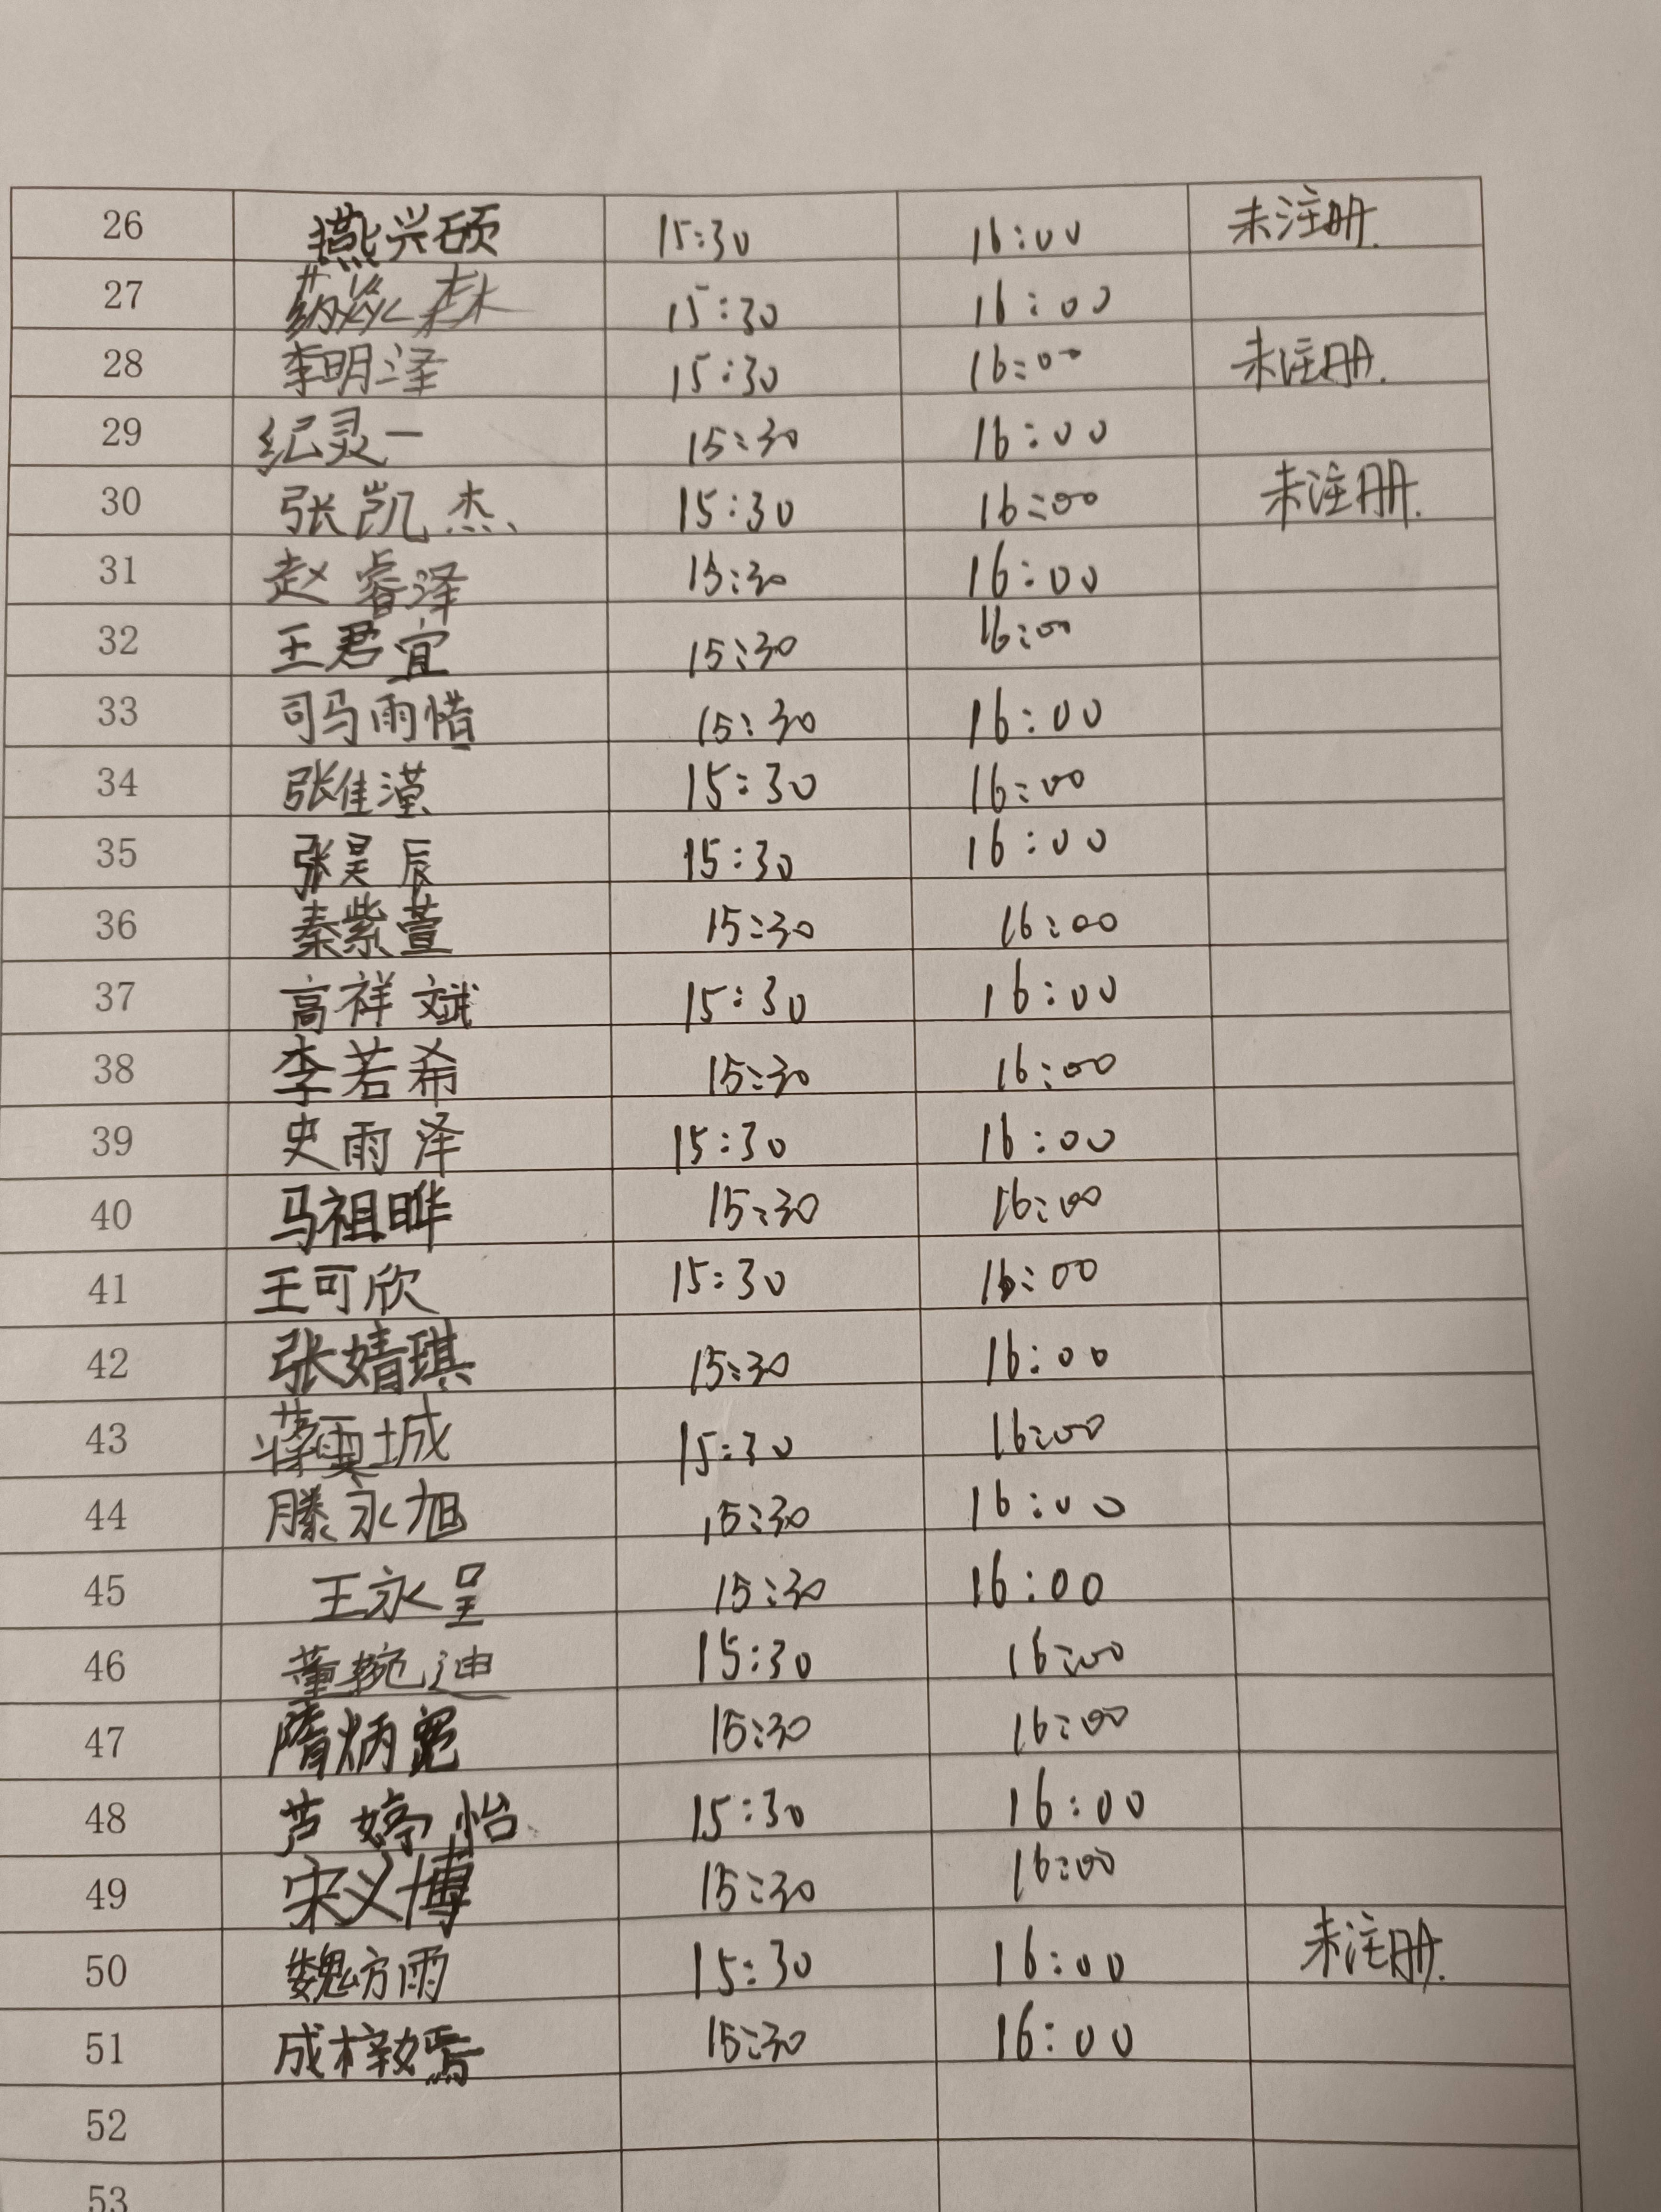 26 燕兴硕 15:30 16:00 未注册.
27 15:30 16:00
28 李明泽 15:30 16:00 未注册.
29 纪灵一 15:30 16:00
30 张凯杰 15:30 16:00 未注册.
31 赵睿泽 15:30 16:00
32 王君宜 15:30 16:00
33 司马雨惜 15:30 16:00
34 张佳滢 15:30 16:00
35 张昊辰 15:30 16:00
36 秦紫萱 15:30 16:00
37 高祥斌 15:30 16:00
38 李若希 15:30 16:00
39 史雨泽 15:30 16:00
40 马祖晔 15:30 16:00
41 王可欣 15:30 16:00
42 张婧琪 15:30 16:00
43 15:30 16:00
44 滕永旭 15:30 16:00
45 王永呈 15:30 16:00
46 董婉迪 15:30 16:00
47 隋炳 15:30 16:00
48 芦婷怡 15:30 16:00
49 宋义博 15:30 16:00
50 魏方雨 15:30 16:00 未注册.
51 成梓嫣 15:30 16:00
52
53